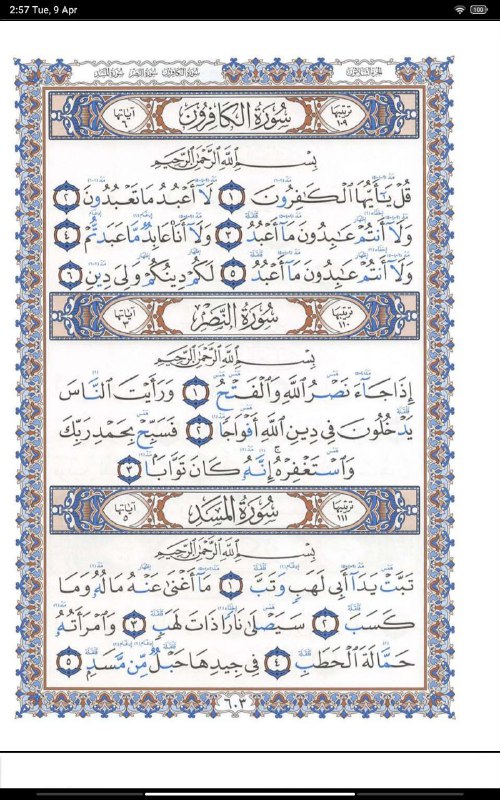 2:57 Tue, 9 Apr
100
سُورَةُ الكَافِرُون سُورَةُ النَّصْر سُورَةُ المَسَد
الجُزءُ الثَّلَاثُون
ترتيبها ١٠٩ سُورَةُ الكَافِرُونَ آياتها ٦
بِسْمِ ٱللَّهِ ٱلرَّحْمَٰنِ ٱلرَّحِيمِ
قُلْ يَٰٓأَيُّهَا ٱلْكَٰفِرُونَ ١ لَآ أَعْبُدُ مَا تَعْبُدُونَ ٢
وَلَآ أَنتُمْ عَٰبِدُونَ مَآ أَعْبُدُ ٣ وَلَآ أَنَا۠ عَابِدٌ مَّا عَبَدتُّمْ ٤
وَلَآ أَنتُمْ عَٰبِدُونَ مَآ أَعْبُدُ ٥ لَكُمْ دِينُكُمْ وَلِىَ دِينِ ٦
ترتيبها ١١٠ سُورَةُ النَّصْرِ آياتها ٣
بِسْمِ ٱللَّهِ ٱلرَّحْمَٰنِ ٱلرَّحِيمِ
إِذَا جَآءَ نَصْرُ ٱللَّهِ وَٱلْفَتْحُ ١ وَرَأَيْتَ ٱلنَّاسَ
يَدْخُلُونَ فِى دِينِ ٱللَّهِ أَفْوَاجًا ٢ فَسَبِّحْ بِحَمْدِ رَبِّكَ
وَٱسْتَغْفِرْهُ ۚ إِنَّهُۥ كَانَ تَوَّابًۢا ٣
ترتيبها ١١١ سُورَةُ المَسَدِ آياتها ٥
بِسْمِ ٱللَّهِ ٱلرَّحْمَٰنِ ٱلرَّحِيمِ
تَبَّتْ يَدَآ أَبِى لَهَبٍ وَتَبَّ ١ مَآ أَغْنَىٰ عَنْهُ مَالُهُۥ وَمَا
كَسَبَ ٢ سَيَصْلَىٰ نَارًا ذَاتَ لَهَبٍ ٣ وَٱمْرَأَتُهُۥ
حَمَّالَةَ ٱلْحَطَبِ ٤ فِى جِيدِهَا حَبْلٌ مِّن مَّسَدٍۭ ٥
٦٠٣